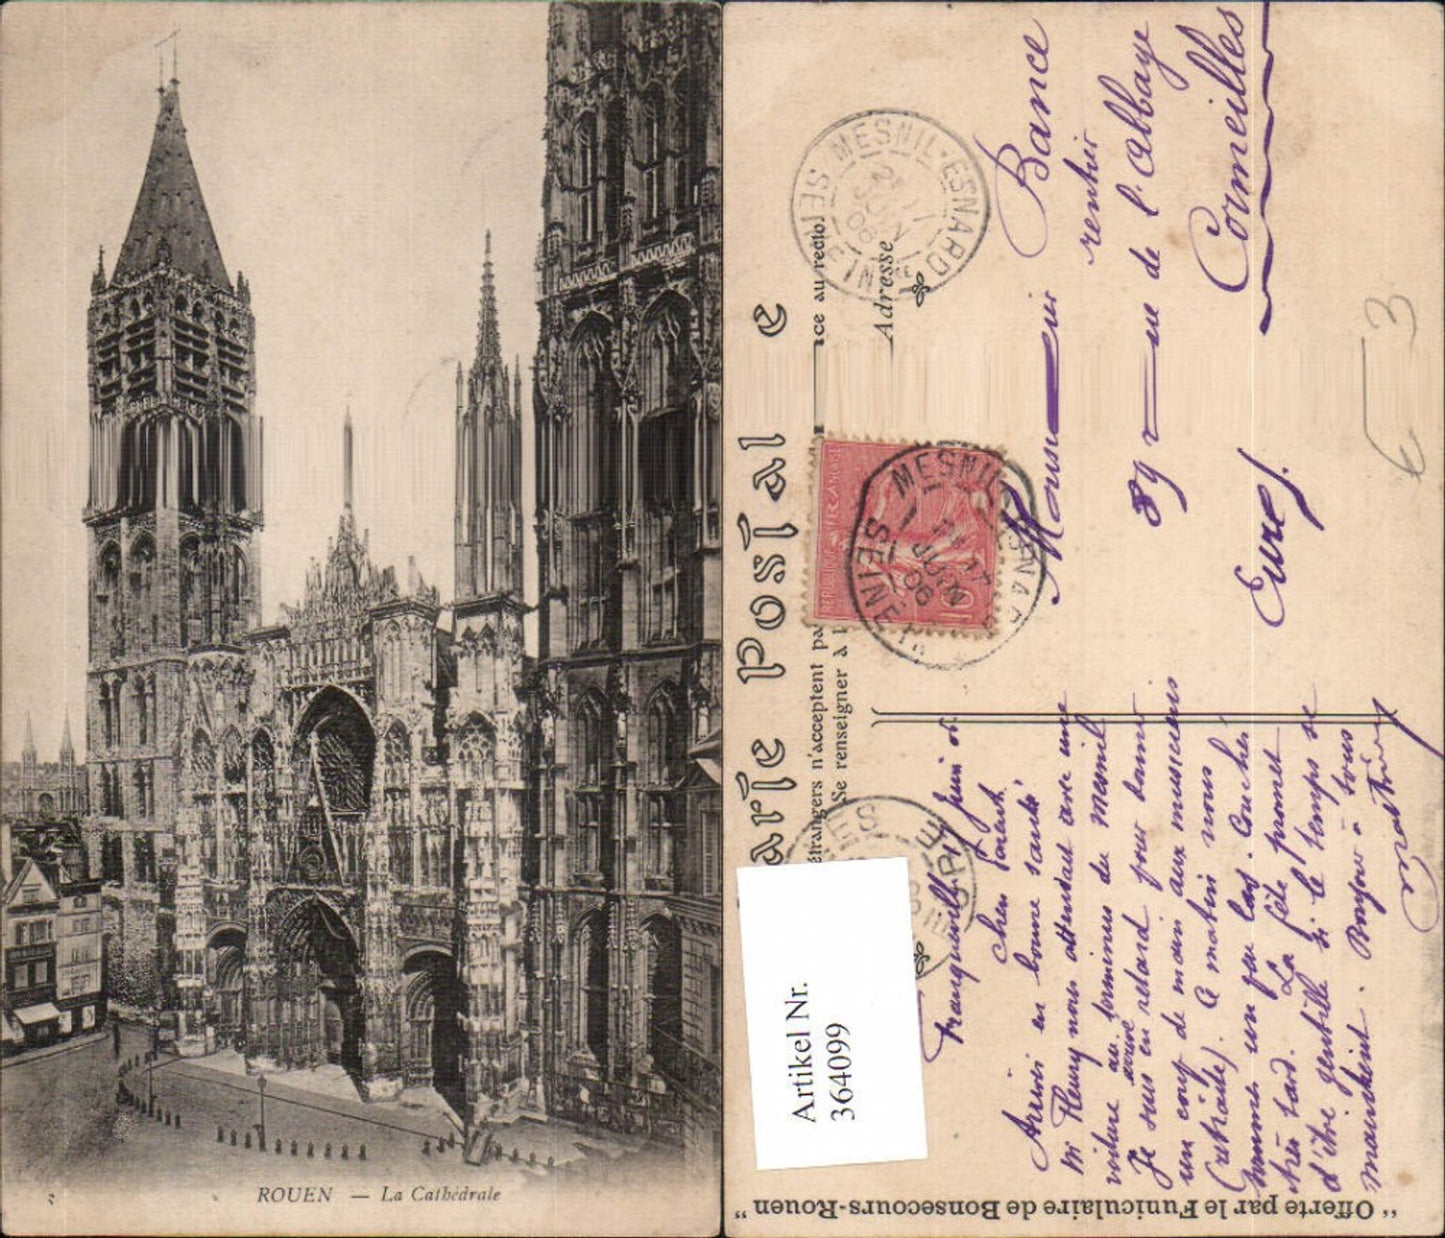 3
ROUEN — La Cathédrale
Carte Postale
étrangers n'acceptent pa
ce au recto
Se renseigner à l
Adresse
MESNIL-ESNARD
SEINE INF
JUIN
06
RÉPUBLIQUE FRANÇAISE
10
MESNIL-ESNARD
SEINE
17
JUIN
06
Monsieur Bance
rentier
89 rue de l'Abbaye
Cormeilles
Eure
€ 3
Franqueville juin 06
Cher Parent
Arrivés en bonne santé
Mr Fleury nous attendait avec une
voiture au terminus du Mesnil
Je suis arrivé en retard pour donner
un coup de main aux musiciens
(retraite). Ce matin nous
sommes un peu las. Couchés
très tard. La fête promet
d'être gentille si le temps se
maintient. Bonjour à tous
Artikel Nr.
364099
" Offerte par le Funiculaire de Bonsecours-Rouen "